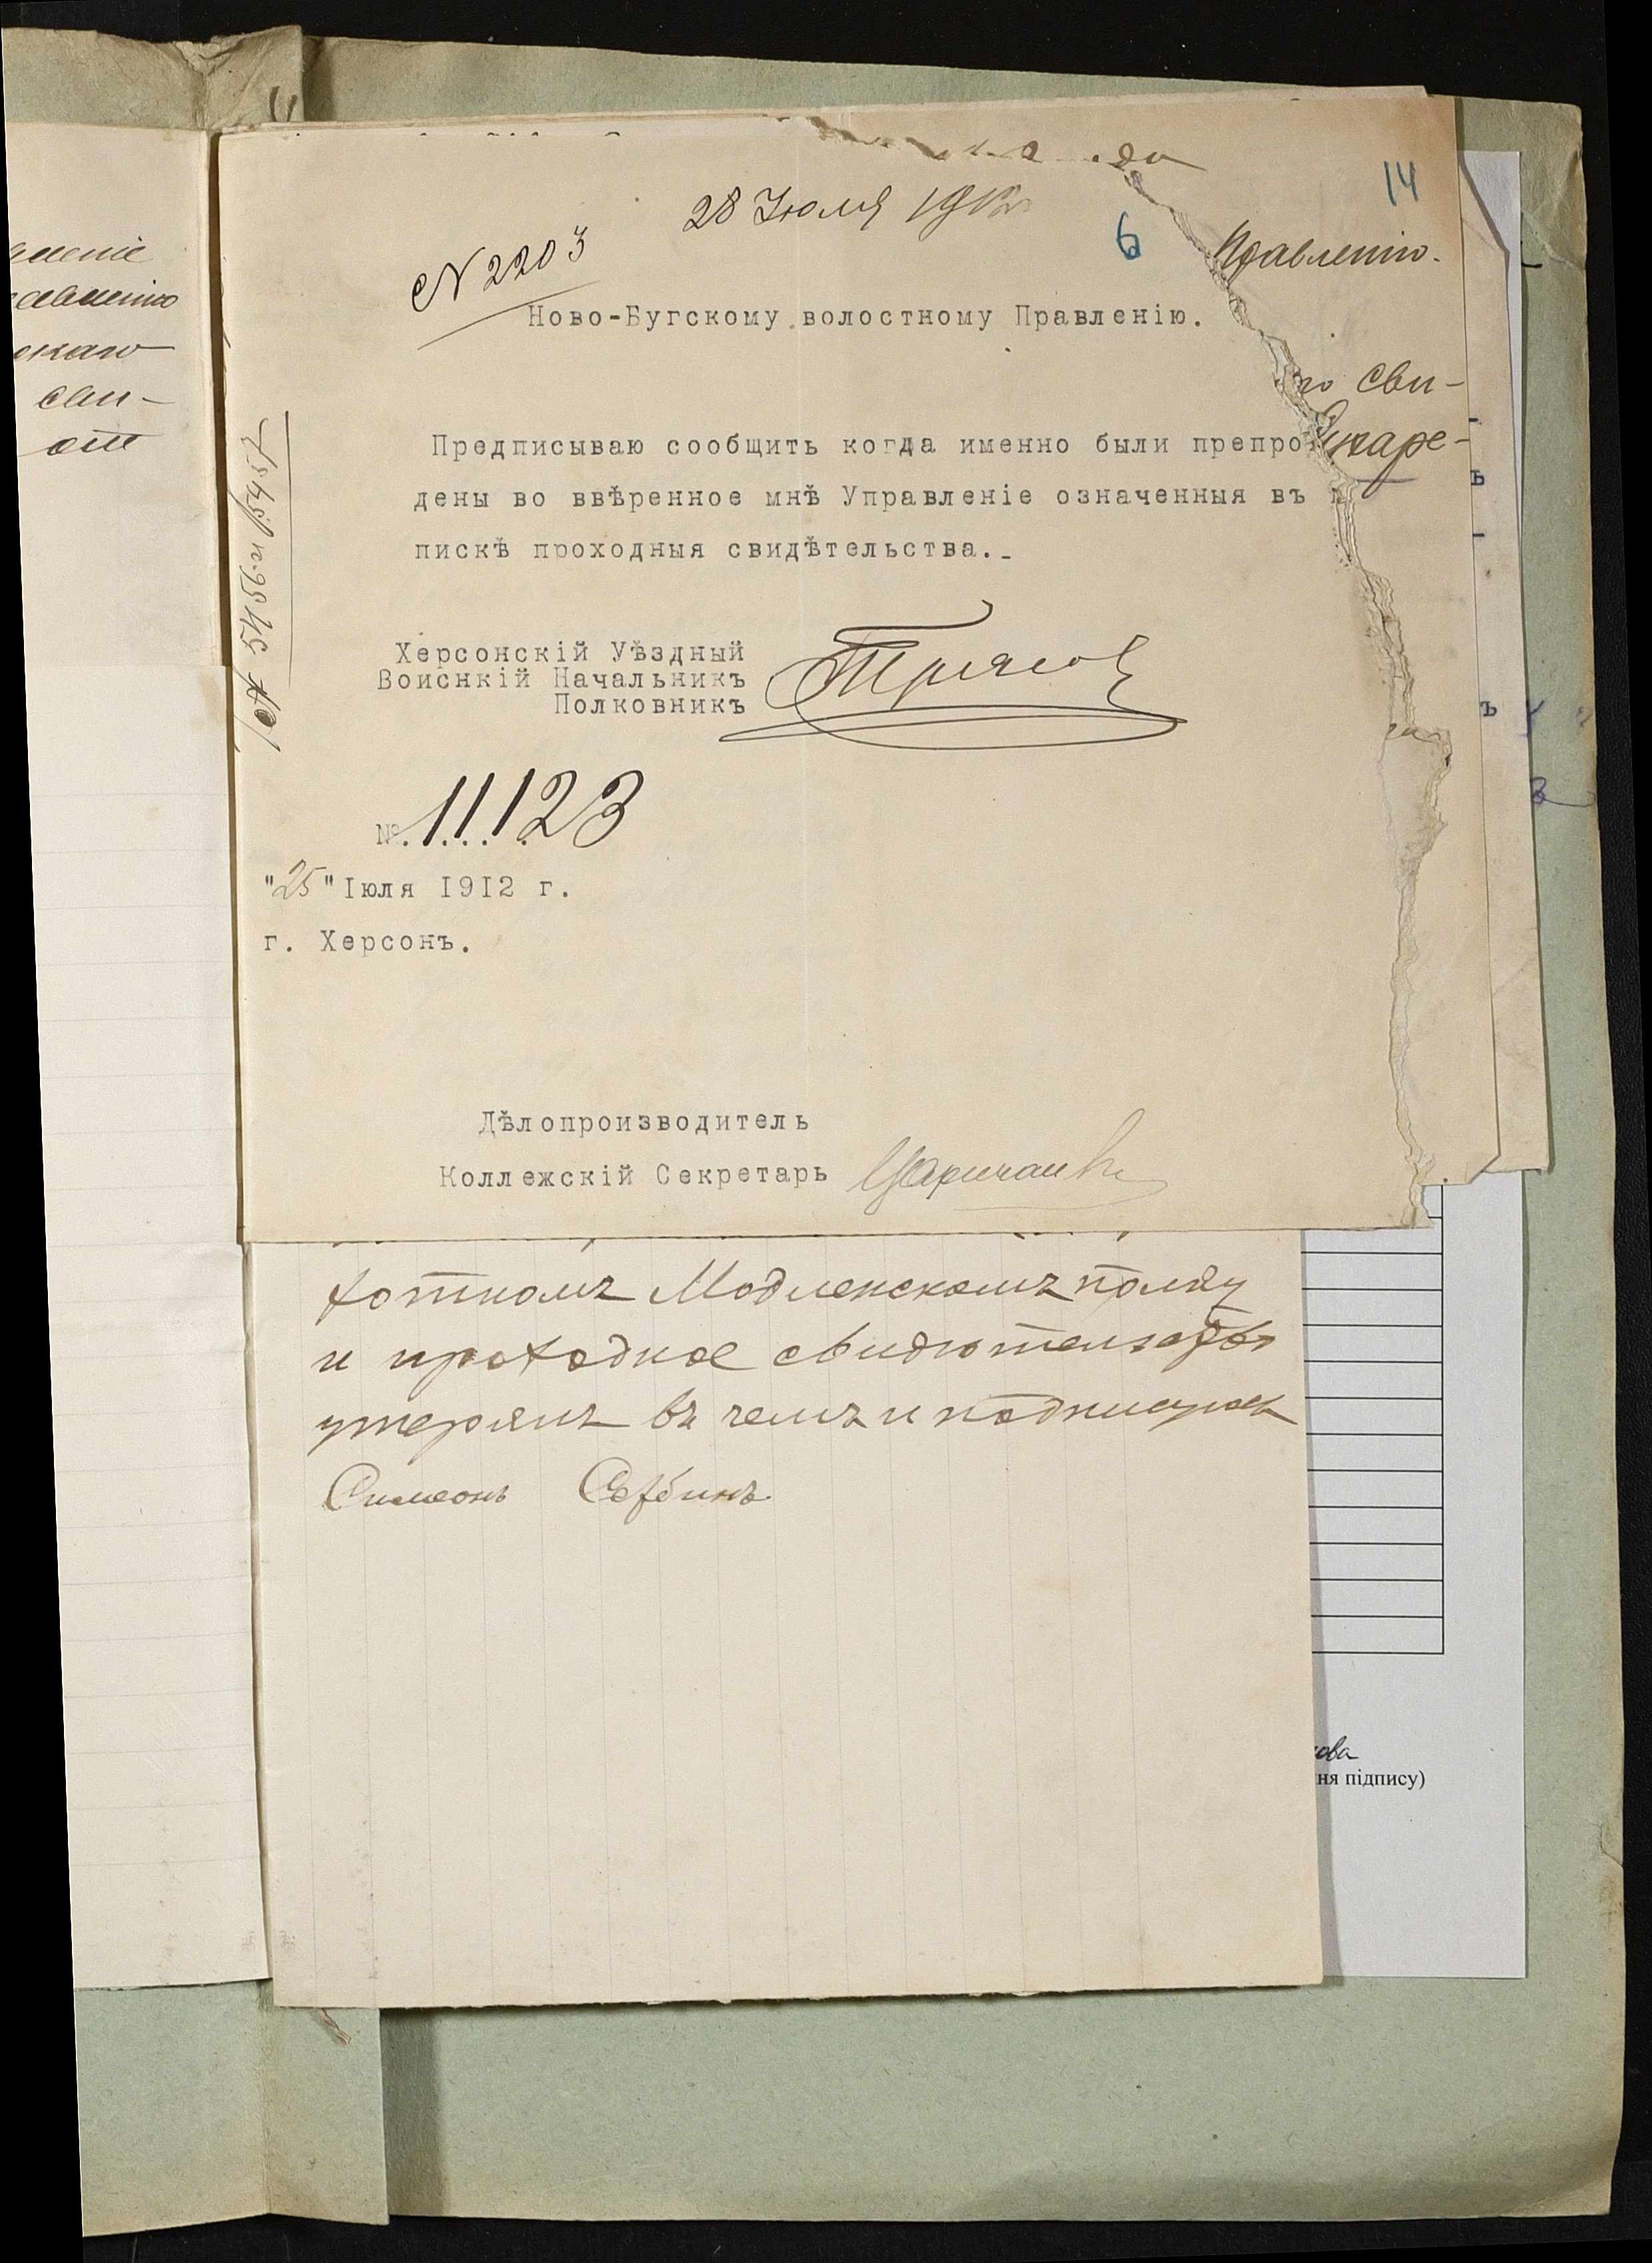 14
28 Іюля 1912
6
N 2203
Правленію.
Ново-Бугскому волостному Правленію.
сви-
Предписываю сообщить когда именно были препро
каре-
дены во ввѣренное мнѣ Управленіе означенныя въ
пискѣ проходныя свидѣтельства.
Херсонскій Уѣздный
Воиснкій Начальникъ
Полковникъ
№ 11123
"25" Іюля 1912 г.
г. Херсонъ.
Дѣлопроизводитель
Коллежскій Секретарь
хотномъ Модленскомъ полку
и проходное свидѣтельство
утерялъ въ чемъ и подписуюсь
Симеонъ Сербинъ
авленію
скаго
сви-
от
ова
ня підпису)